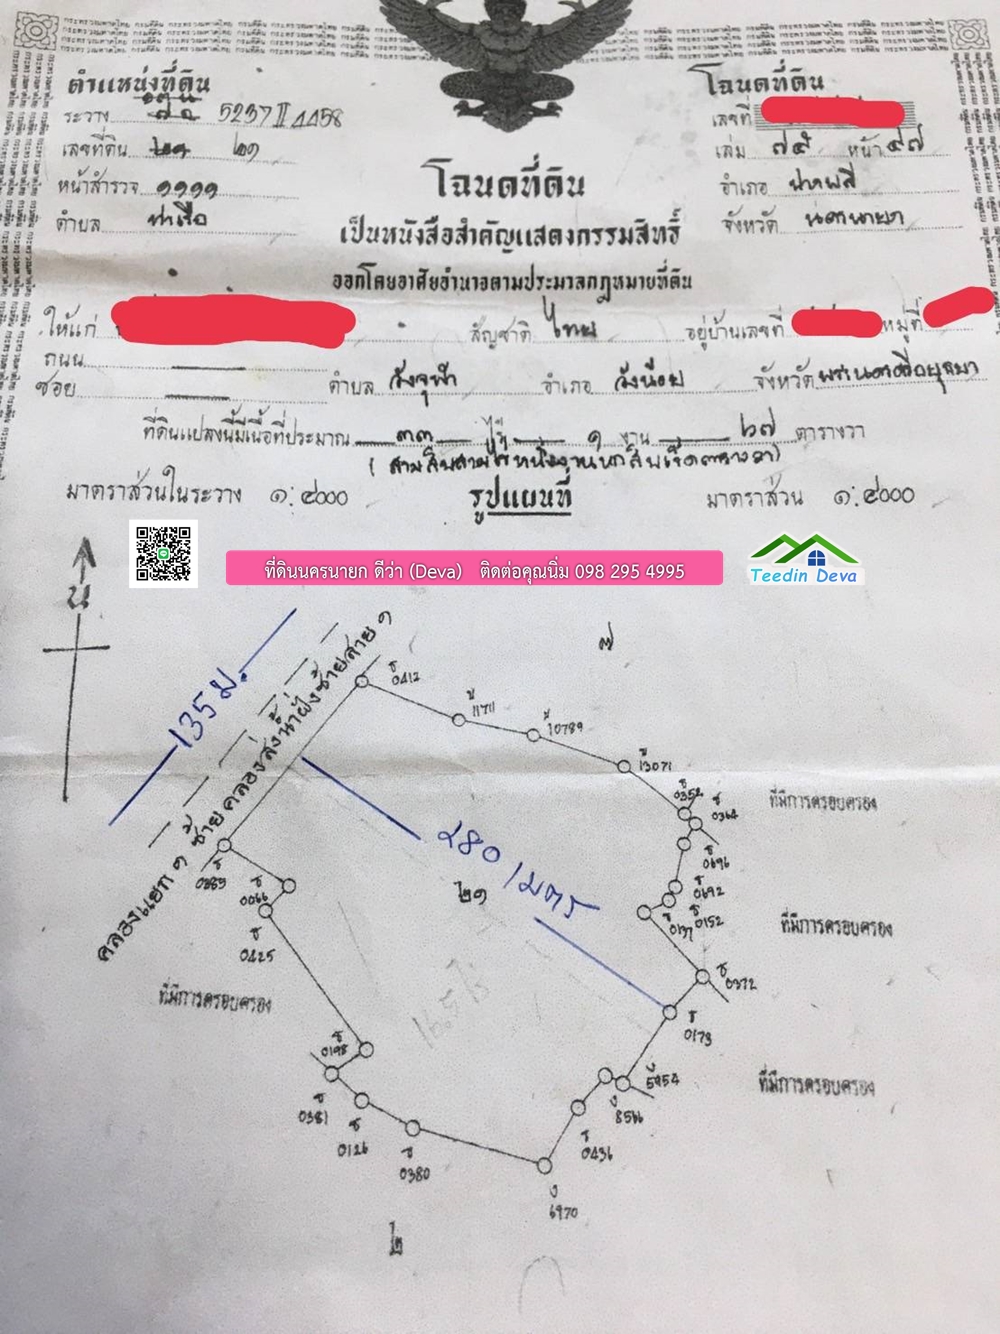 ตำแหน่งที่ดิน
ระวาง 5237 II 4458
เลขที่ดิน ๒๑
หน้าสำรวจ ๑๑๑๑
ตำบล ท่าเรือ
โฉนดที่ดิน
เลขที่
เล่ม ๗๕ หน้า ๔๗
อำเภอ ปากพลี
จังหวัด นครนายก
โฉนดที่ดิน
เป็นหนังสือสำคัญแสดงกรรมสิทธิ์
ออกโดยอาศัยอำนาจตามประมวลกฎหมายที่ดิน
ให้แก่ สัญชาติ ไทย อยู่บ้านเลขที่ หมู่ที่
ถนน
ซอย ตำบล วังจุฬา อำเภอ วังน้อย จังหวัด พระนครศรีอยุธยา
ที่ดินแปลงนี้มีเนื้อที่ประมาณ ๓๓ ไร่ ๑ งาน ๖๗ ตารางวา
(สามสิบสามไร่หนึ่งงานหกสิบเจ็ดตารางวา)
มาตราส่วนในระวาง ๑:๔๐๐๐ รูปแผนที่ มาตราส่วน ๑:๔๐๐๐
ที่ดินนครนายก ดีว่า (Deva) ติดต่อคุณนิ่ม 098 295 4995
Teedin Deva
น
135 ม.
คลองแยก ๑ ซ้าย คลองส่งน้ำฝั่งซ้ายสาย ๑
๗
ธ 0412
น 11711
น 10789
น 13071
ธ 0352
ธ 0364
ที่มีการครอบครอง
ธ 0696
ธ 0692
ธ 0152
ธ 0137
ที่มีการครอบครอง
280 เมตร
๒๑
ธ 0383
ธ 0066
ธ 0425
ที่มีการครอบครอง
ธ 0372
ธ 0173
ธ 0198
ธ 0381
ธ 0126
ธ 0380
ง 5954
ง 8566
ธ 0436
ที่มีการครอบครอง
ง 6970
๒